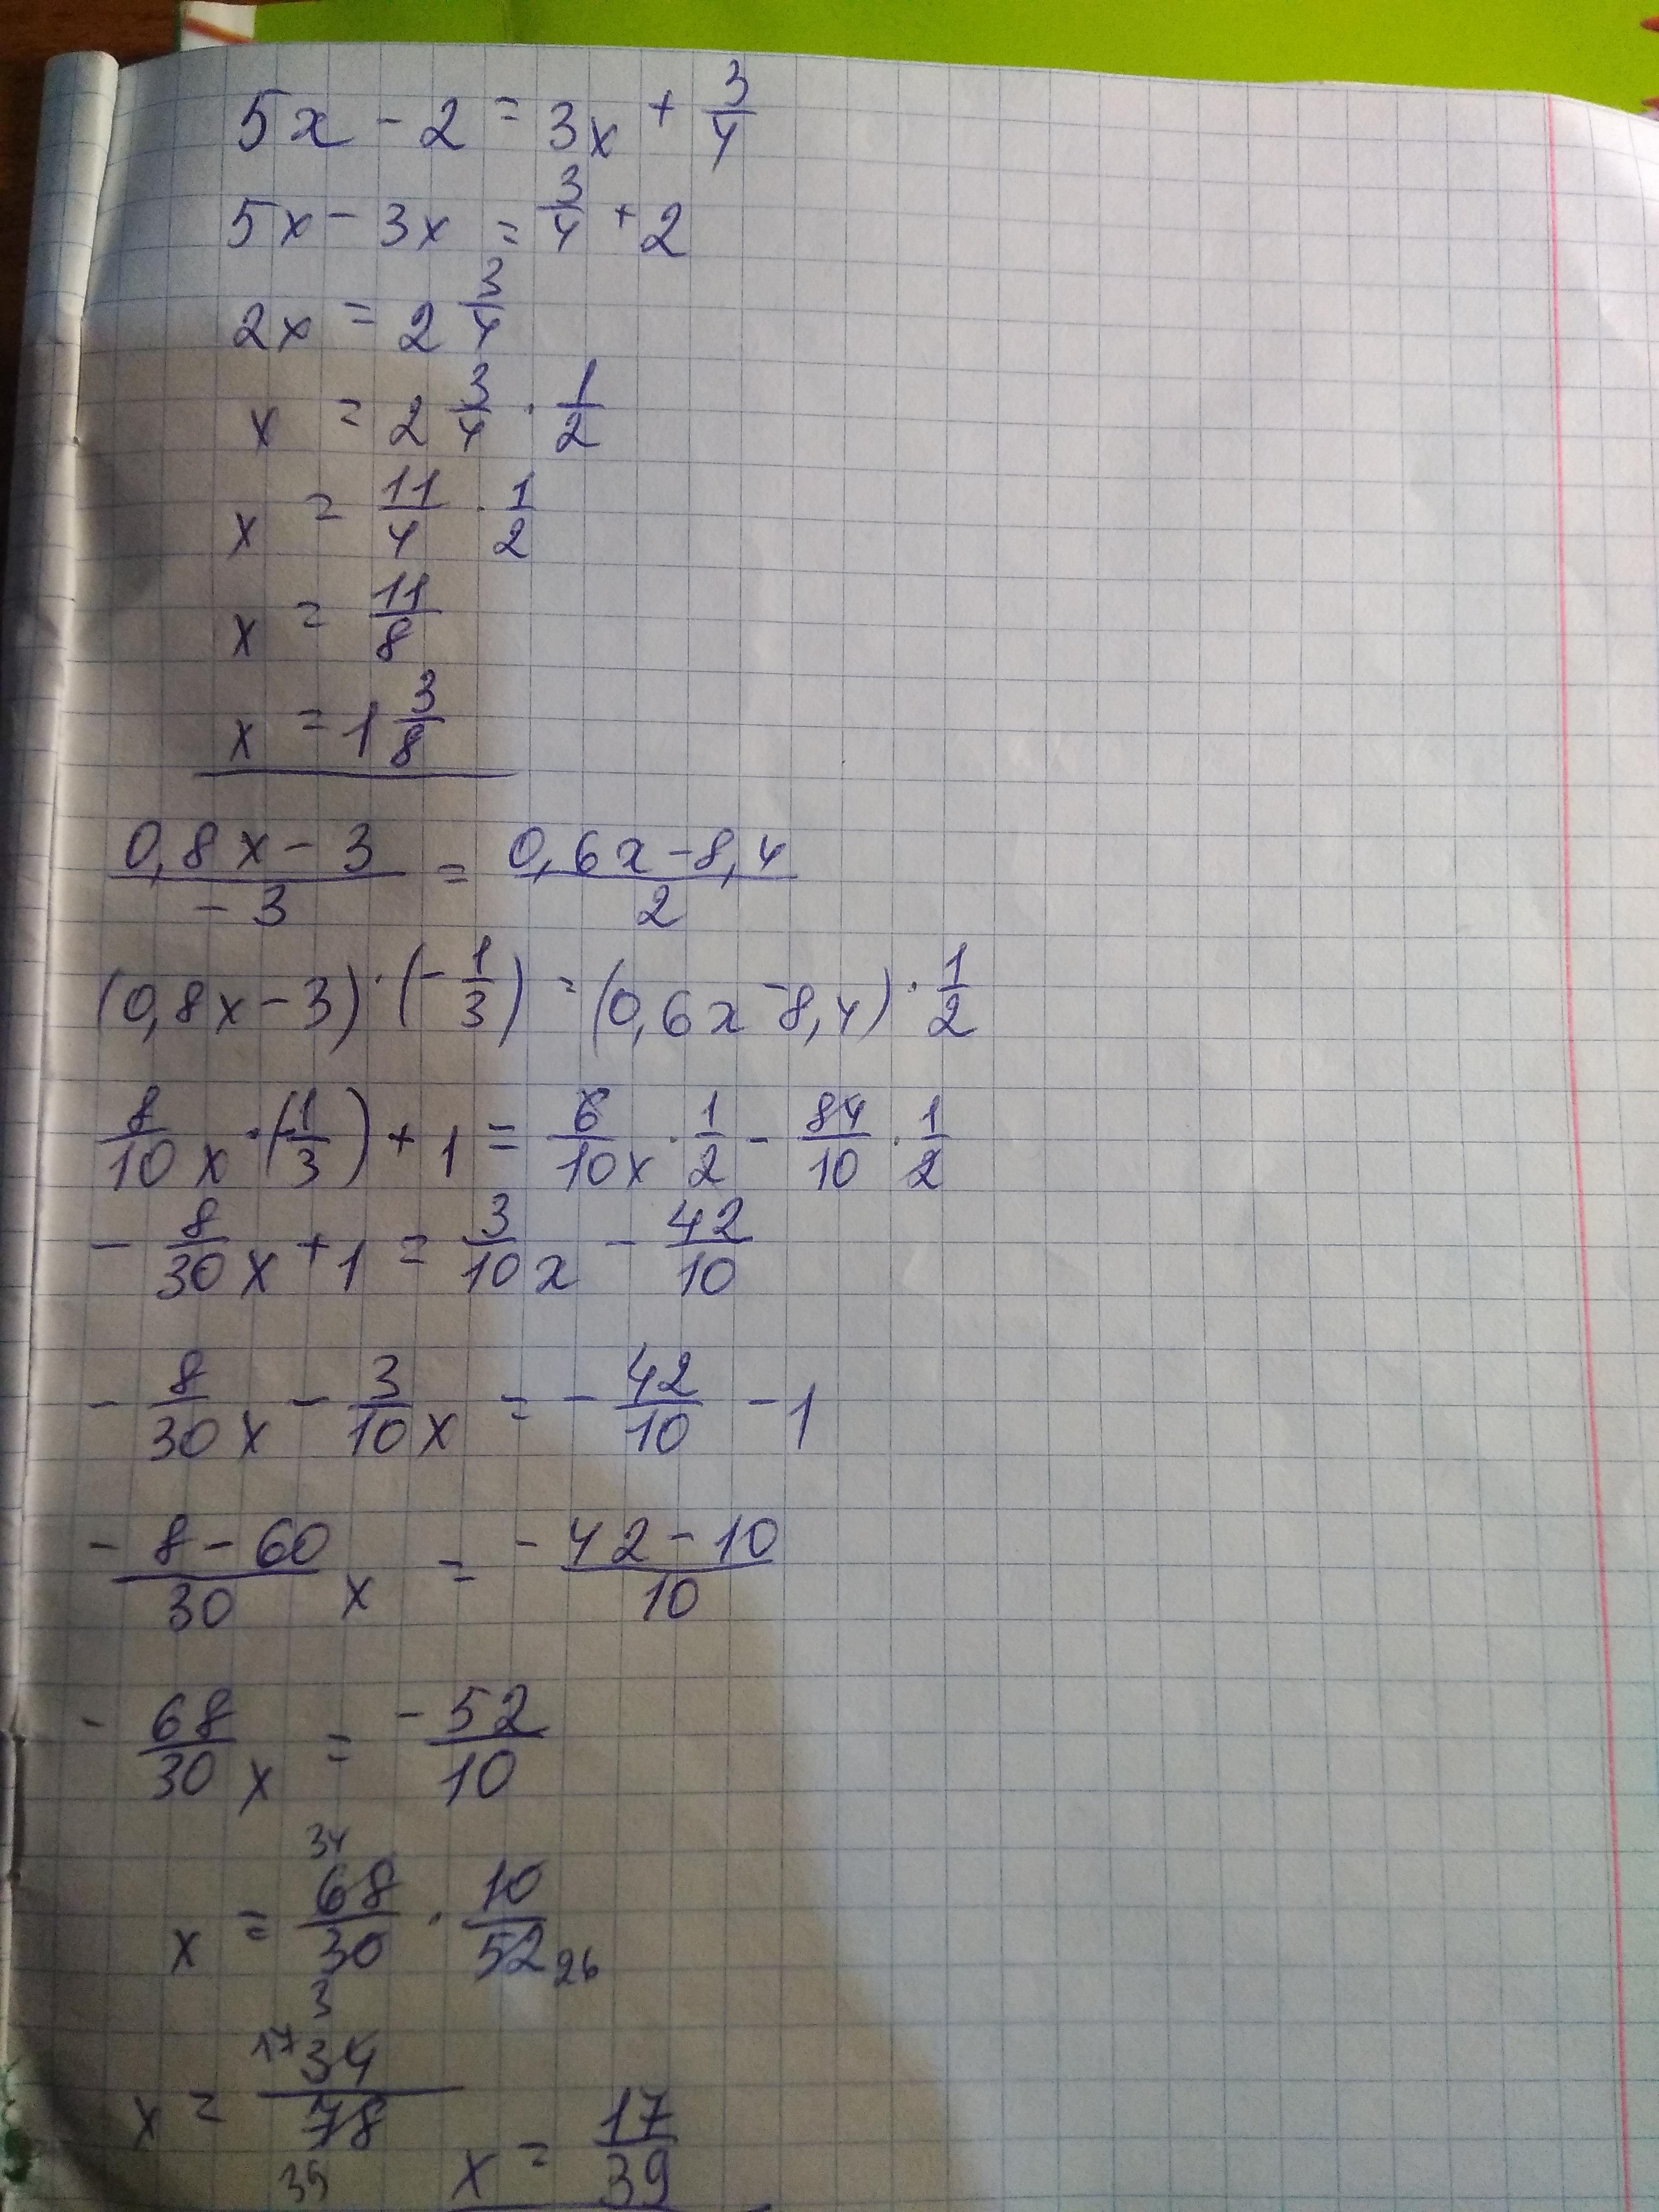 5x - 2 = 3x + 3/4
5x - 3x = 3/4 + 2
2x = 2 3/4
x = 2 3/4 · 1/2
x = 11/4 · 1/2
x = 11/8
x = 1 3/8
(0,8x - 3)/(-3) = (0,6x - 8,4)/2
(0,8x - 3) · (-1/3) = (0,6x - 8,4) · 1/2
8/10 x · (-1/3) + 1 = 6/10 x · 1/2 - 84/10 · 1/2
- 8/30 x + 1 = 3/10 x - 42/10
- 8/30 x - 3/10 x = - 42/10 - 1
(-8 - 60)/30 x = (-42 - 10)/10
- 68/30 x = - 52/10
34
x = 68/30 · 10/52 26
3
17 34
x = 34/78
39
x = 17/39